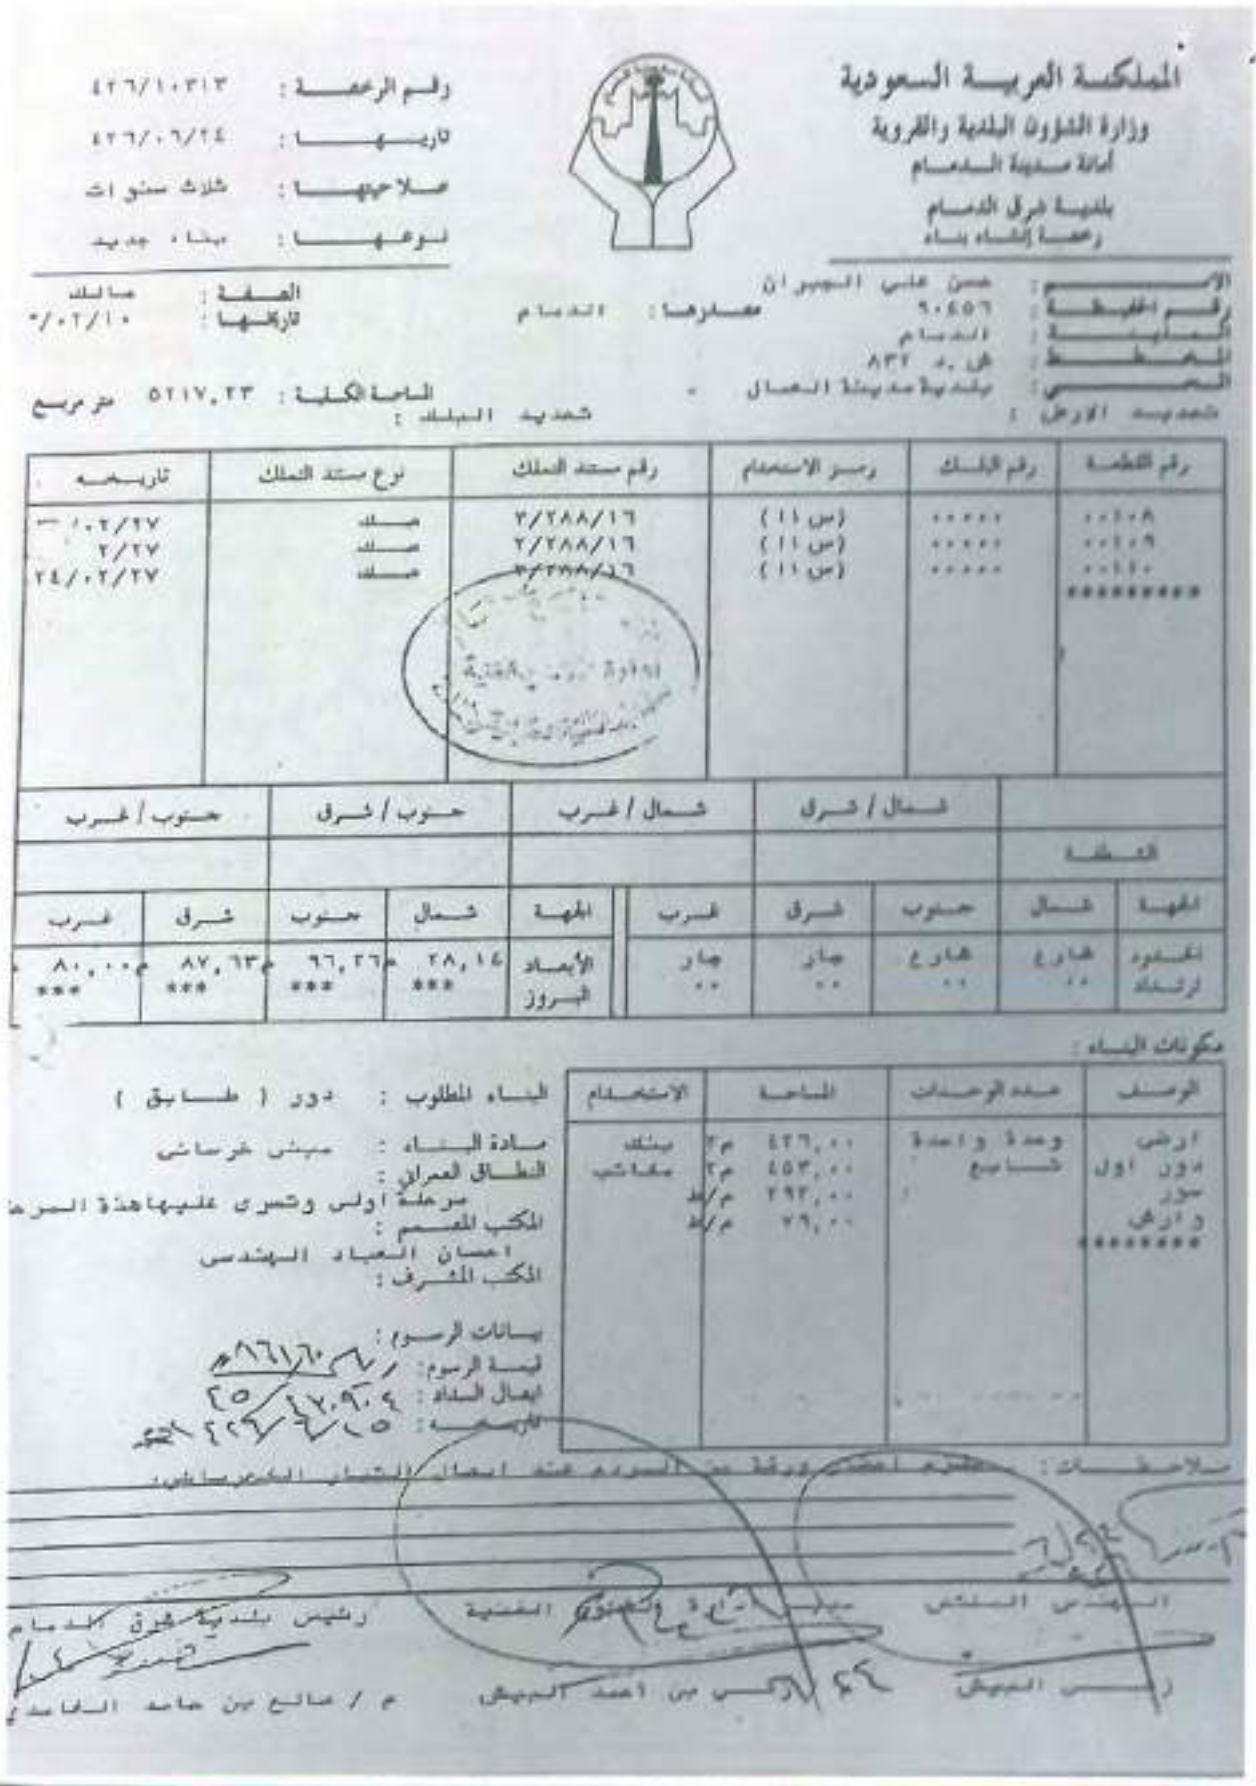 المملكة العربية السعودية
وزارة الشؤون البلدية والقروية
أمانة مدينة الدمام
بلدية شرق الدمام
رخصة إنشاء بناء
رقم الرخصة : ٤٢٦/١٠٣١٣
تاريخها : ٤٢٦/٠٦/٢٤
صلاحيتها : ثلاث سنوات
نوعها : بناء جديد
الاسم : حسن علي الجبران
الصفة : مالك
رقم الحفيظة : ٩٠٤٥٦
مصدرها : الدمام
تاريخها : ٠٢/١٠/
المدينة : الدمام
المخطط : ش.د ٨٣٢
الحي : بلدية مدينة العمال -
المساحة الكلية : ٥٢١٧,٢٣ متر مربع
تحديد الارض :
تحديد البلك :
رقم القطعة رقم البلك رمز الاستخدام رقم مستند التملك نوع مستند التملك تاريخه
٠٠١٠٨ ٠٠٠٠٠ (س ١١) ٣/٢٨٨/١٦ صك ٠٢/٢٧/
٠٠١٠٩ ٠٠٠٠٠ (س ١١) ٢/٢٨٨/١٦ صك ٢/٢٧
٠٠١١٠ ٠٠٠٠٠ (س ١١) ٣/٢٨٨/١٦ صك ٢٤/٠٢/٢٧
*********
شمال / شرق شمال / غرب جنوب / شرق جنوب / غرب
الشطفة
الجهة شمال جنوب شرق غرب الجهة شمال جنوب شرق غرب
الحدود شارع شارع جار جار الأبعاد ٢٨,١٤ م ٩٦,٢٦ م ٨٧,٦٣ م ٨٠,٠٠ م
ارتداد ٠٠ ٠٠ ٠٠ ٠٠ البروز *** *** *** ***
مكونات البناء :
الوصف عدد الوحدات المساحة الاستخدام
ارضي وحدة واحدة ٤٢٦,٠٠ م٢ بنك
دور اول شايع ٤٥٣,٠٠ م٢ مكاتب
سور ٢٩٢,٠٠ م/ط
وارش ٧٩,٠٠ م/ط
********
البناء المطلوب : دور ( طابق )
مادة البناء : مبنى خرساني
النطاق العمراني :
مرحلة اولى وتسري عليها هذة المرح
المكتب المصمم :
احسان العباد الهندسي
المكتب المشرف :
بيانات الرسوم :
قيمة الرسوم :
ايصال السداد :
تاريخه :
ملاحظات : يلتزم احضار ورقة من عند ايصال التيار الكهربائي.
المهندس
مدير ادارة الشئون الفنية
رئيس بلدية شرق الدمام
بن احمد البيش
م / صالح بن حامد الغامدي